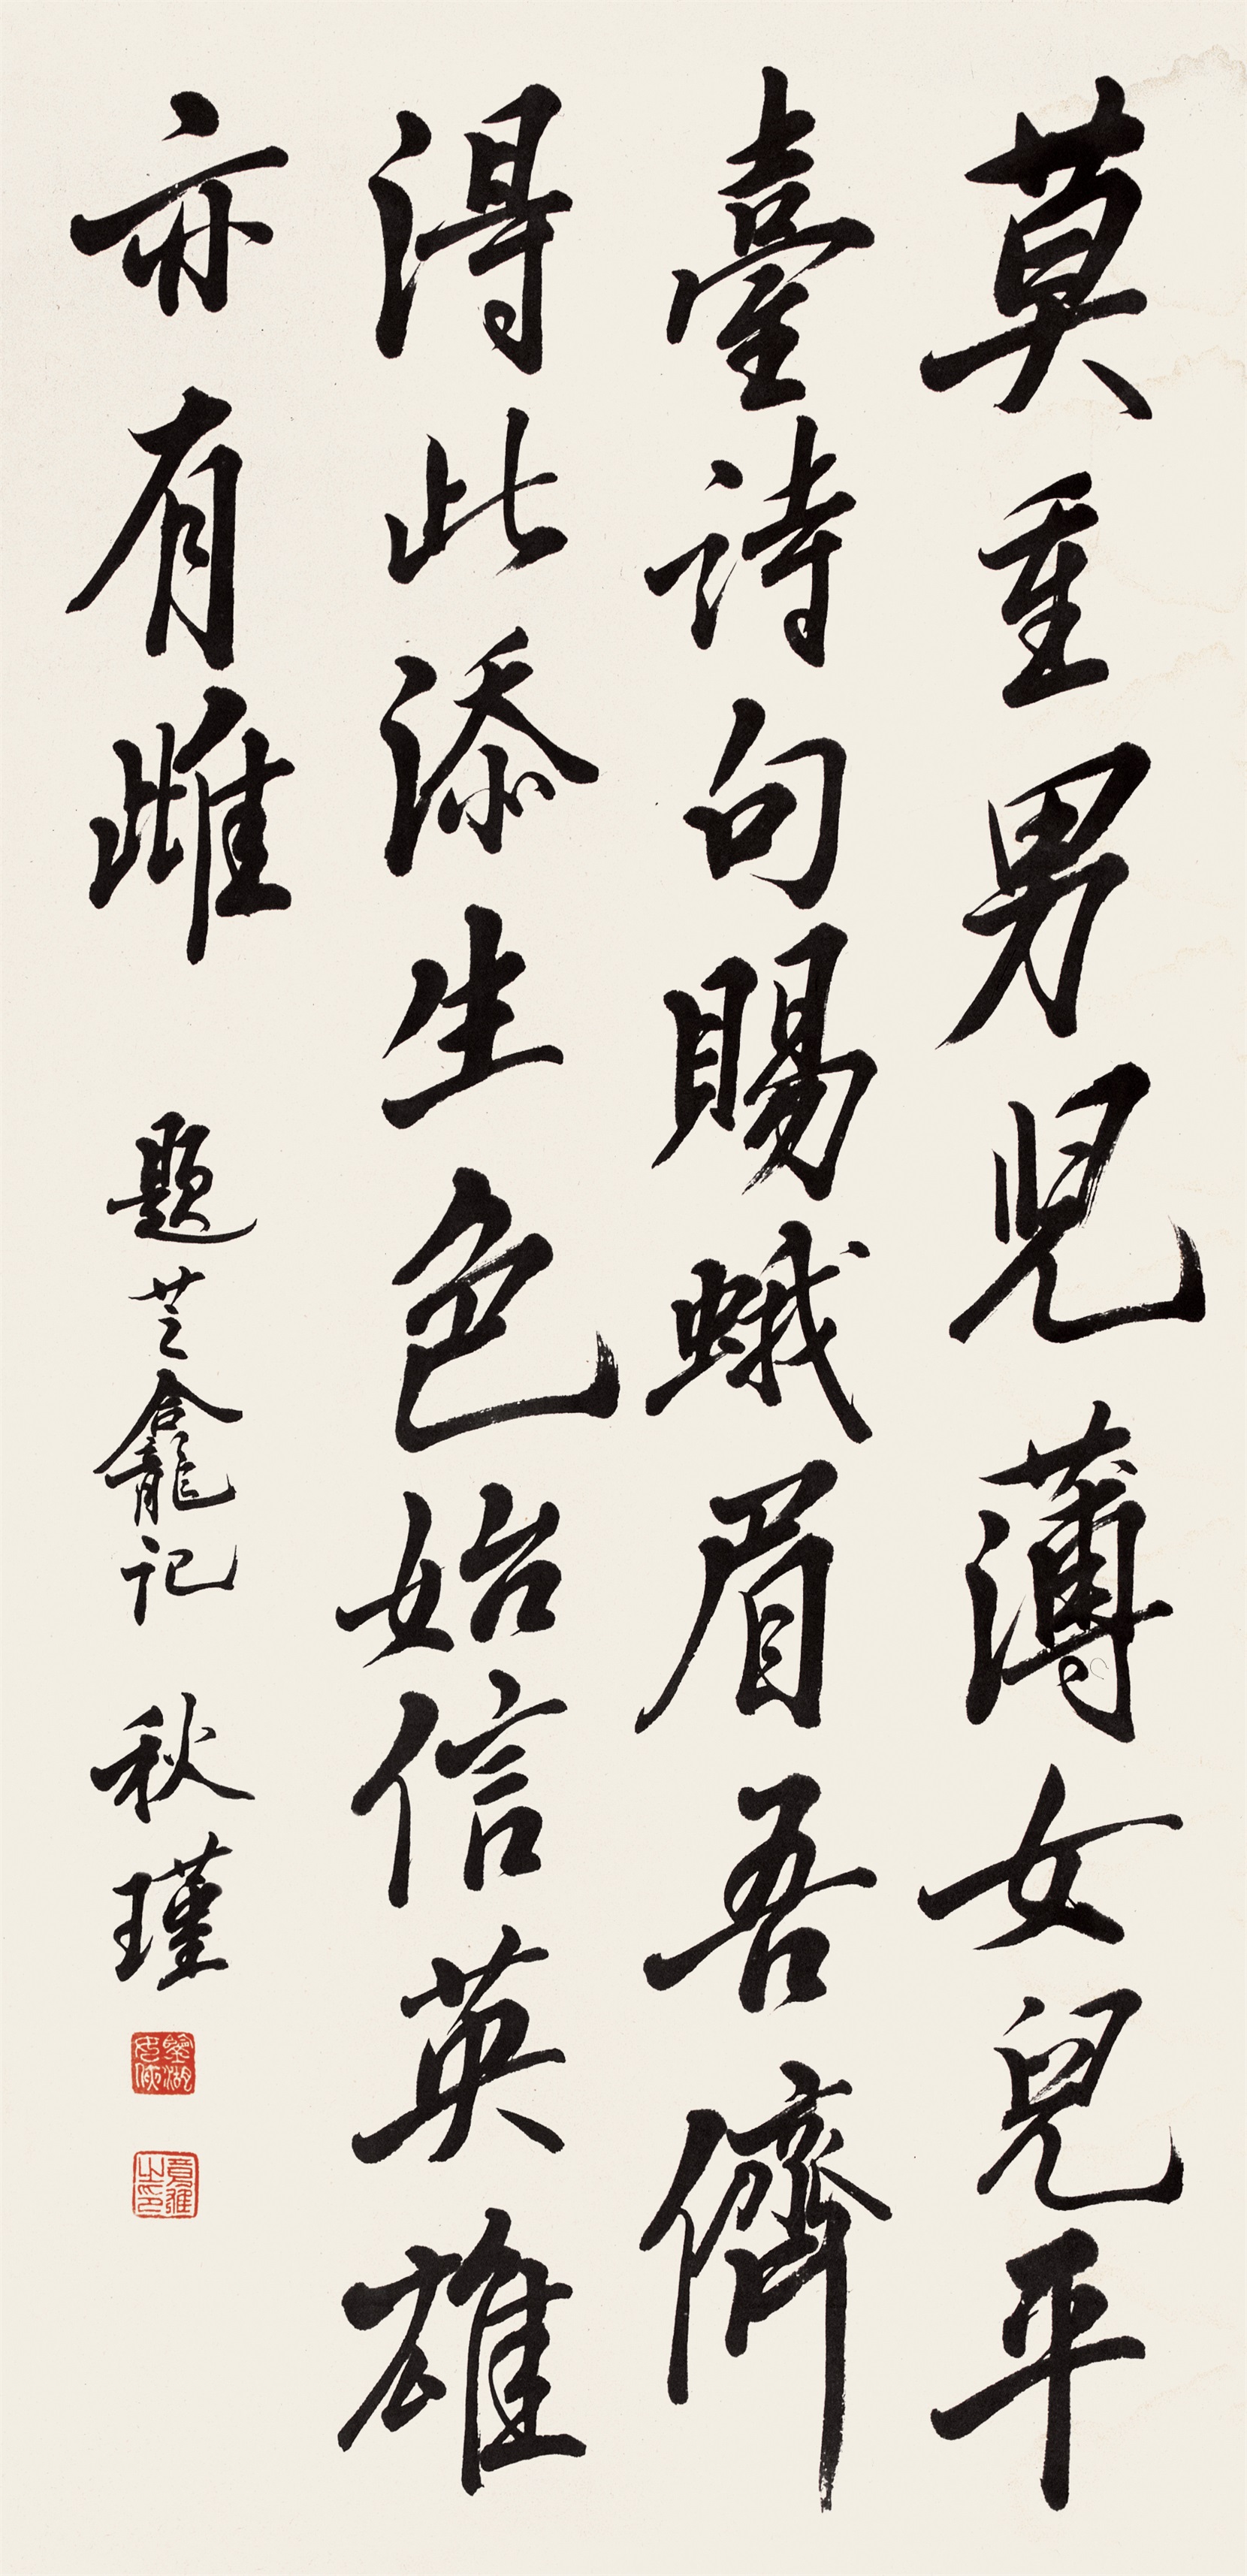 莫重男兒薄女兒平
臺詩句賜蛾眉吾儕
得此添生色始信英雄
亦有雌 題芝龕記 秋瑾
鑒湖女俠